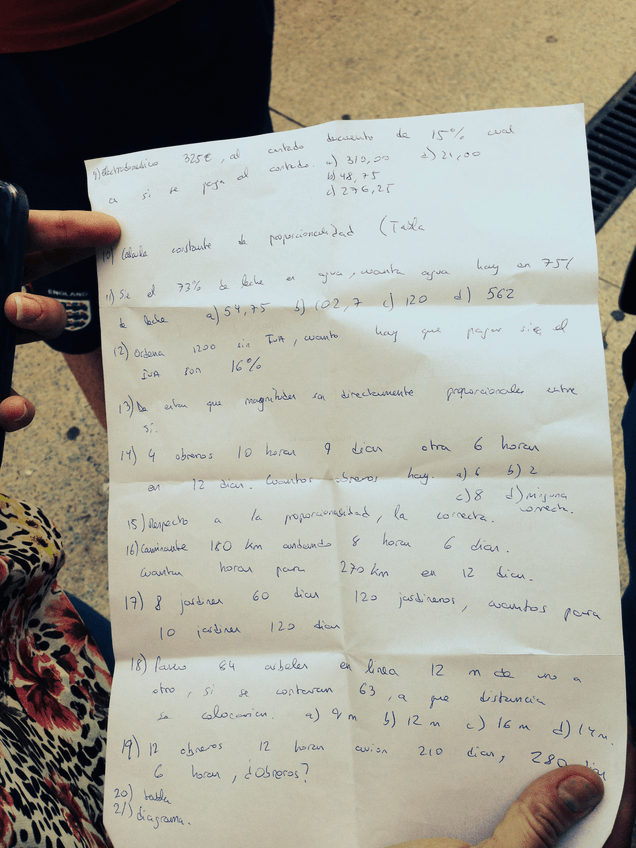 9) Electrodomestico 325€, al contado descuento de 15% cual
a si se paga al contado. a) 310,00 d) 21,00
b) 48,75
c) 276,25
10) Calcula constante de proporcionalidad (Tabla
11) Si el 73% de leche es agua, cuanta agua hay en 75l
de leche a) 54,75 b) 102,7 c) 120 d) 562
12) Ordena 1200 sin IVA, cuanto hay que pagar si el
IVA son 16%
13) De estas que magnitudes son directamente proporcionales entre
sí.
14) 4 obreros 10 horas 9 dias otra 6 horas
en 12 dias. Cuantos obreros hay. a) 6 b) 2
c) 8 d) ninguna
correcta.
15) Respecto a la proporcionalidad, la correcta.
16) Caminante 180 km andando 8 horas 6 dias.
Cuantas horas para 270 km en 12 dias.
17) 8 jardines 60 dias 120 jardineros, cuantos para
10 jardines 120 dias
18) Paseo 84 arboles en linea 12 m de uno a
otro, si se cortaran 63, a que distancia
se colocarian. a) 9 m b) 12 m c) 16 m d) 14 m.
19) 12 obreros 12 horas avion 210 dias, 280 dias
6 horas, ¿Obreros?
20) tabla
21) diagrama.
ENGLAND